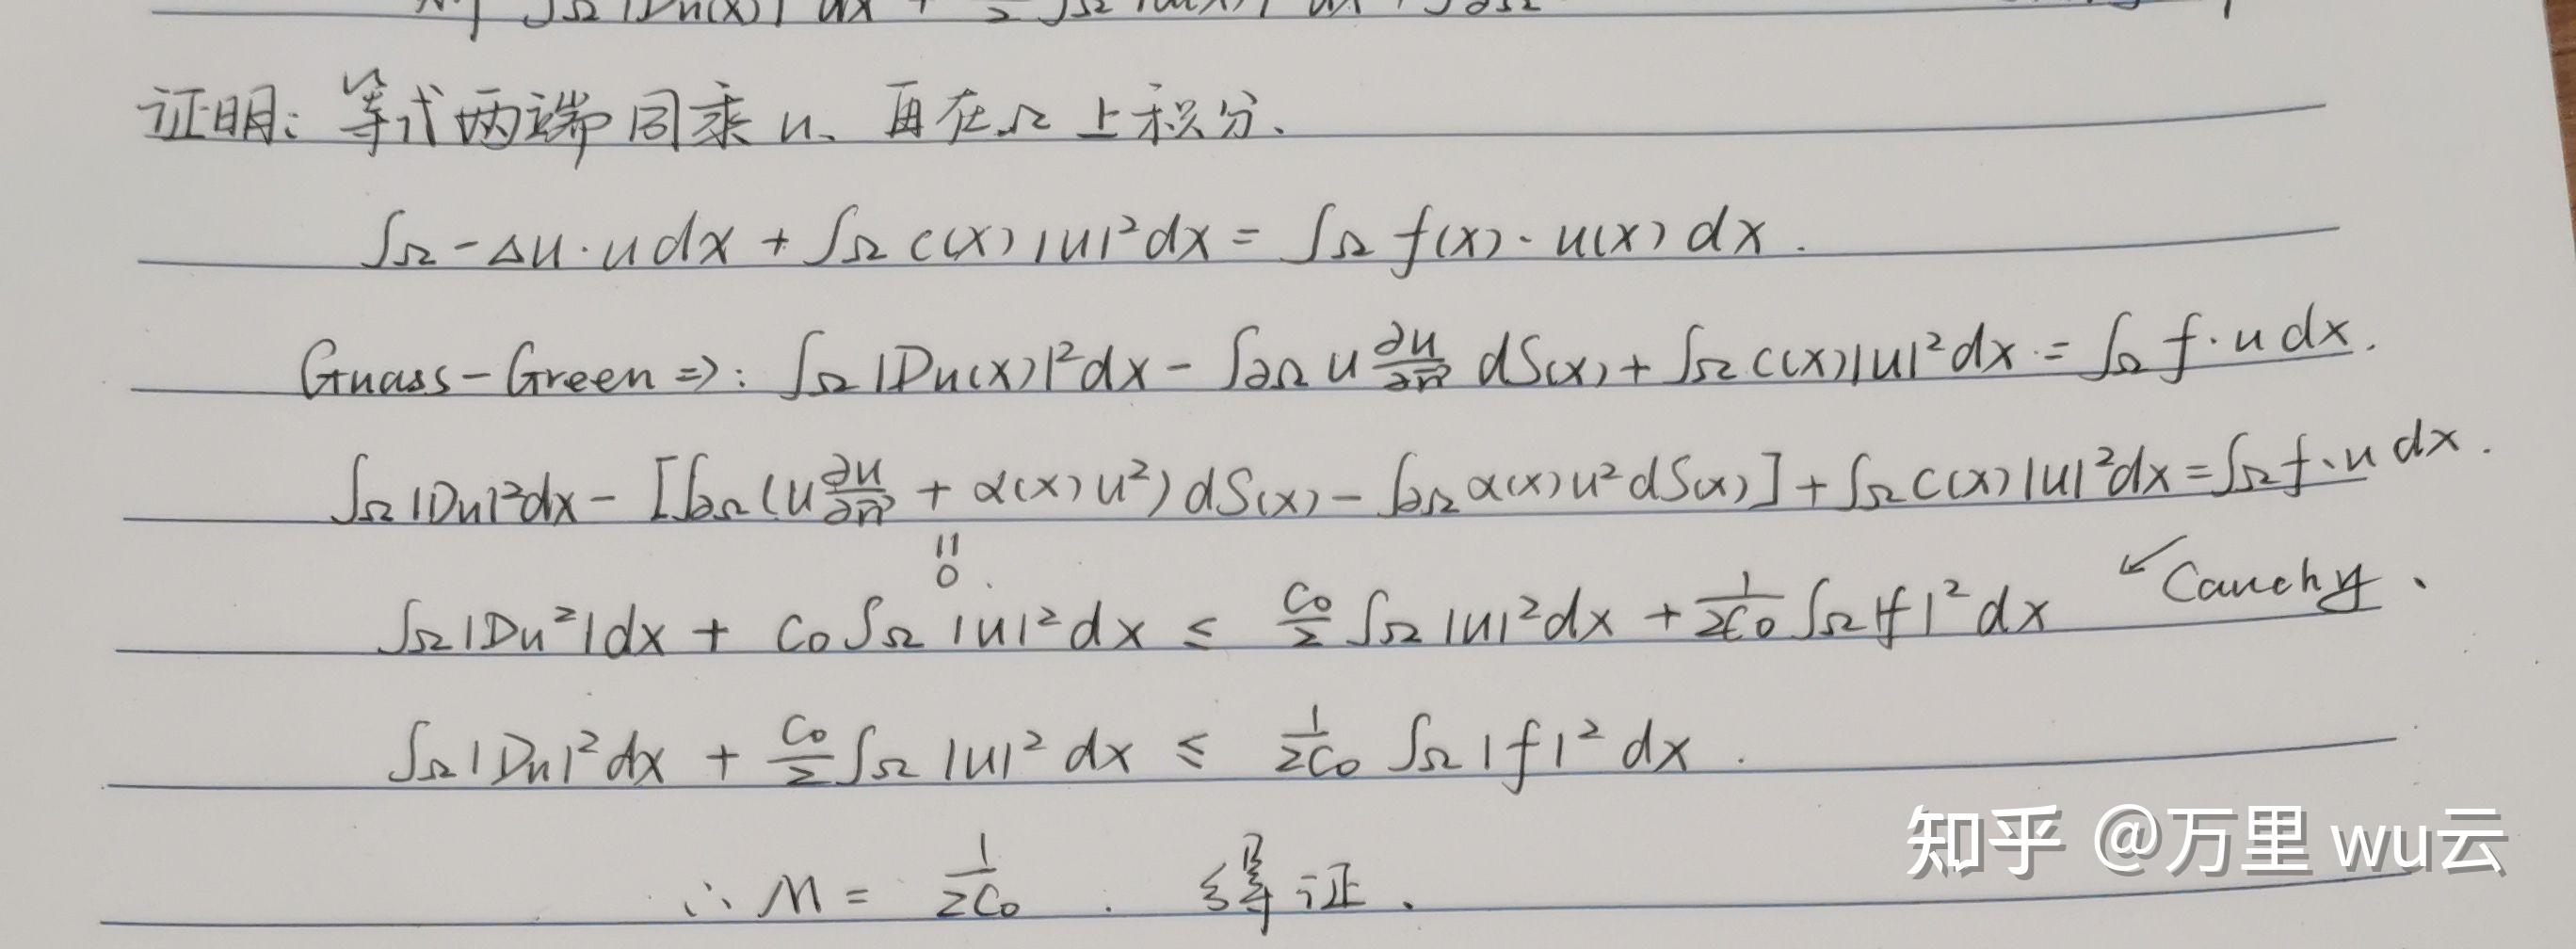 ∫Ω |Du(x)|² dx + ∫Ω |u(x)|² dx ∫∂Ω
证明: 等式两端同乘 u、再在Ω上积分.
∫Ω -Δu·u dx + ∫Ω c(x)|u|² dx = ∫Ω f(x)·u(x) dx.
Guass-Green ⇒: ∫Ω |Du(x)|² dx - ∫∂Ω u ∂u/∂n⃗ dS(x) + ∫Ω c(x)|u|² dx = ∫Ω f·u dx.
∫Ω |Du|² dx - [∫∂Ω (u ∂u/∂n⃗ + α(x)u²) dS(x) - ∫∂Ω α(x)u² dS(x)] + ∫Ω c(x)|u|² dx = ∫Ω f·u dx.
|| 0
∫Ω |Du²| dx + C₀ ∫Ω |u|² dx ≤ C₀/2 ∫Ω |u|² dx + 1/2C₀ ∫Ω |f|² dx ↙ Cauchy.
∫Ω |Du|² dx + C₀/2 ∫Ω |u|² dx ≤ 1/2C₀ ∫Ω |f|² dx.
∴ M = 1/2C₀. 得证.
知乎 @万里wu云